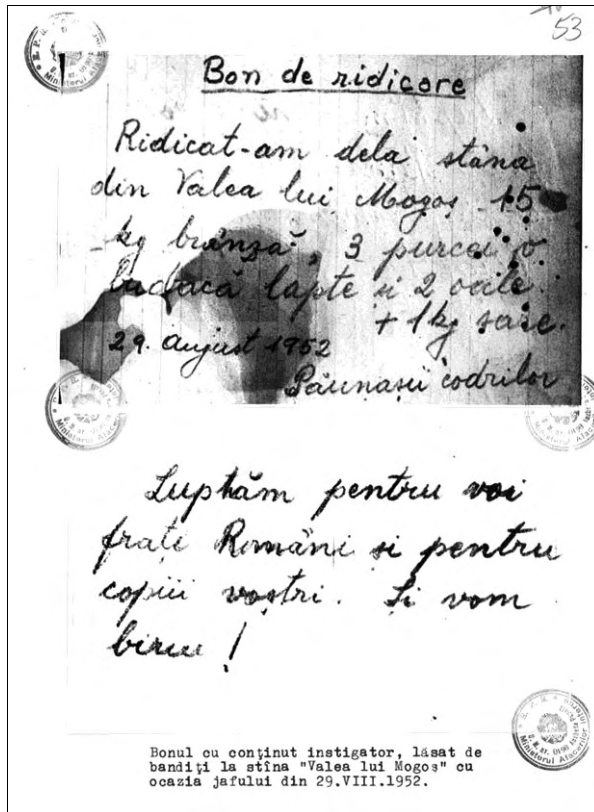 53
Bon de ridicare
Ridicat-am dela stâna
din Valea lui Mogoș 15
kg brânză, 3 purcei o
budacă lapte si 2 ocile.
+ 1 kg sare.
29. august 1952
Păunașii codrilor
Luptăm pentru voi
frați Români si pentru
copiii voștri. Si vom
birui!
Bonul cu conținut instigator, lăsat de
bandiți la stîna "Valea lui Mogoș" cu
ocazia jafului din 29.VIII.1952.